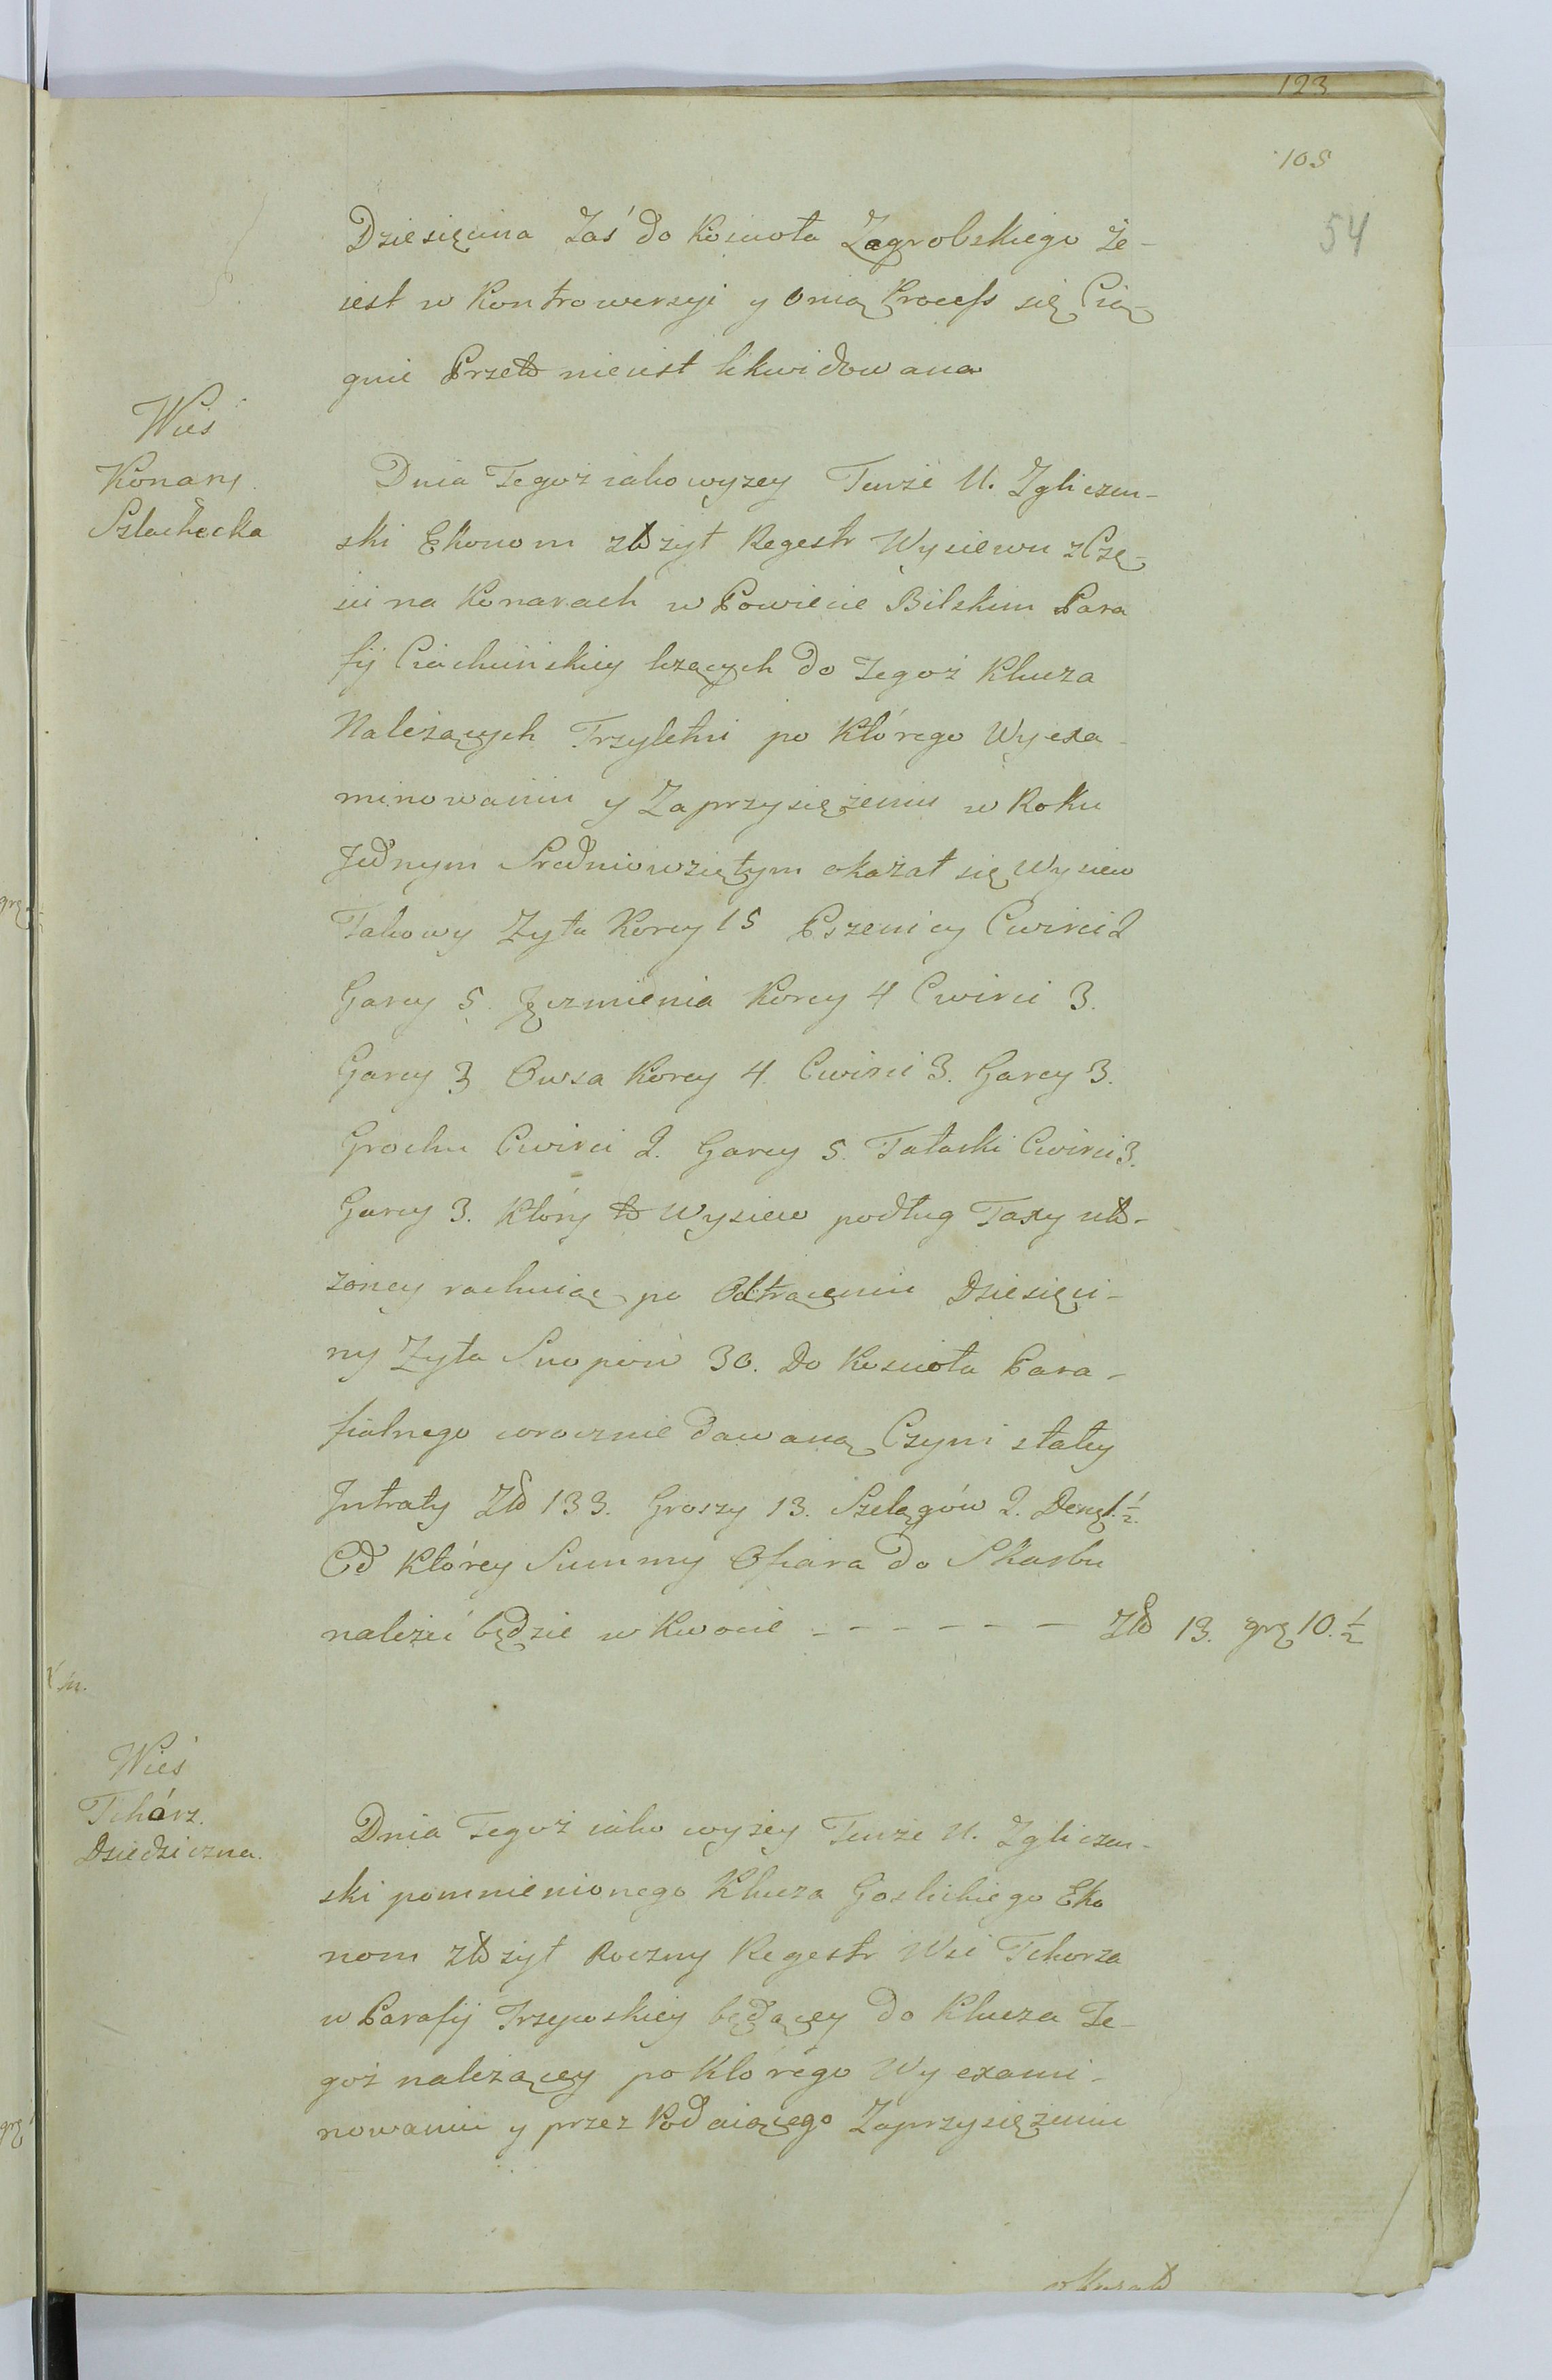 123
105
54
Dziesięcina Zaś do Koscioła Zagrobskiego że-
iest w Kontrowersyi y onią Process się Cią
gnie Przeto nieiest likwidowana
Wieś
Konary
Szlachecka
Dnia Tegoż iako wyżey Tenże U. Zgliczen-
ski Ekonom złożył Regestr Wysiewu z Czę-
ści na Konarach w Powiecie Bilskim Para
fij Ciachcińskiey leżących do Tegoż Klucza
Należących Trzyletni po Którego Wyexa-
minowaniu y Zaprzysiężeniu w Roku
Jednym Sredniowziętym okazał się Wysiew
Takowy Zyta Korcy 15 Pszenicy Cwierci 2
Garcy 5. Jęczmienia Korcy 4 Cwierci 3.
Garcy 3 Owsa Korcy 4. Cwierci 3. Garcy 3.
Grochu Cwierci 2. Garcy 5. Tatarki Cwierci 3.
Garcy 3. Który to Wysiew podług Taxy uło-
żoney rachuiąc po Odtrąceniu Dziesięci-
ny Zyta Snopów 30. Do Koscioła Para-
fialnego corocznie dawaną Czyni stałey
Jntraty Zło 133. Groszy 13. Szelągów 2. Deng. 1/2.
Od Którey Summy Ofiara do Skarbu
należeć będzie w Kwocie - - - - - - Zło 13. grę 10. 1/2
Wieś
Tchórz.
Dziedziczna.
Dnia Tegoż iako wyżey Tenże U. Zgliczen-
ski pomnienionego Klucza Goslickiego Eko
nom złożył Roczny Regestr Wsi Tchorza
w Parafij będącey do Klucza Te-
goż należącey po Którego Wyexami-
nowaniu y przez Podaiącego Zaprzysiężeniu
okazało